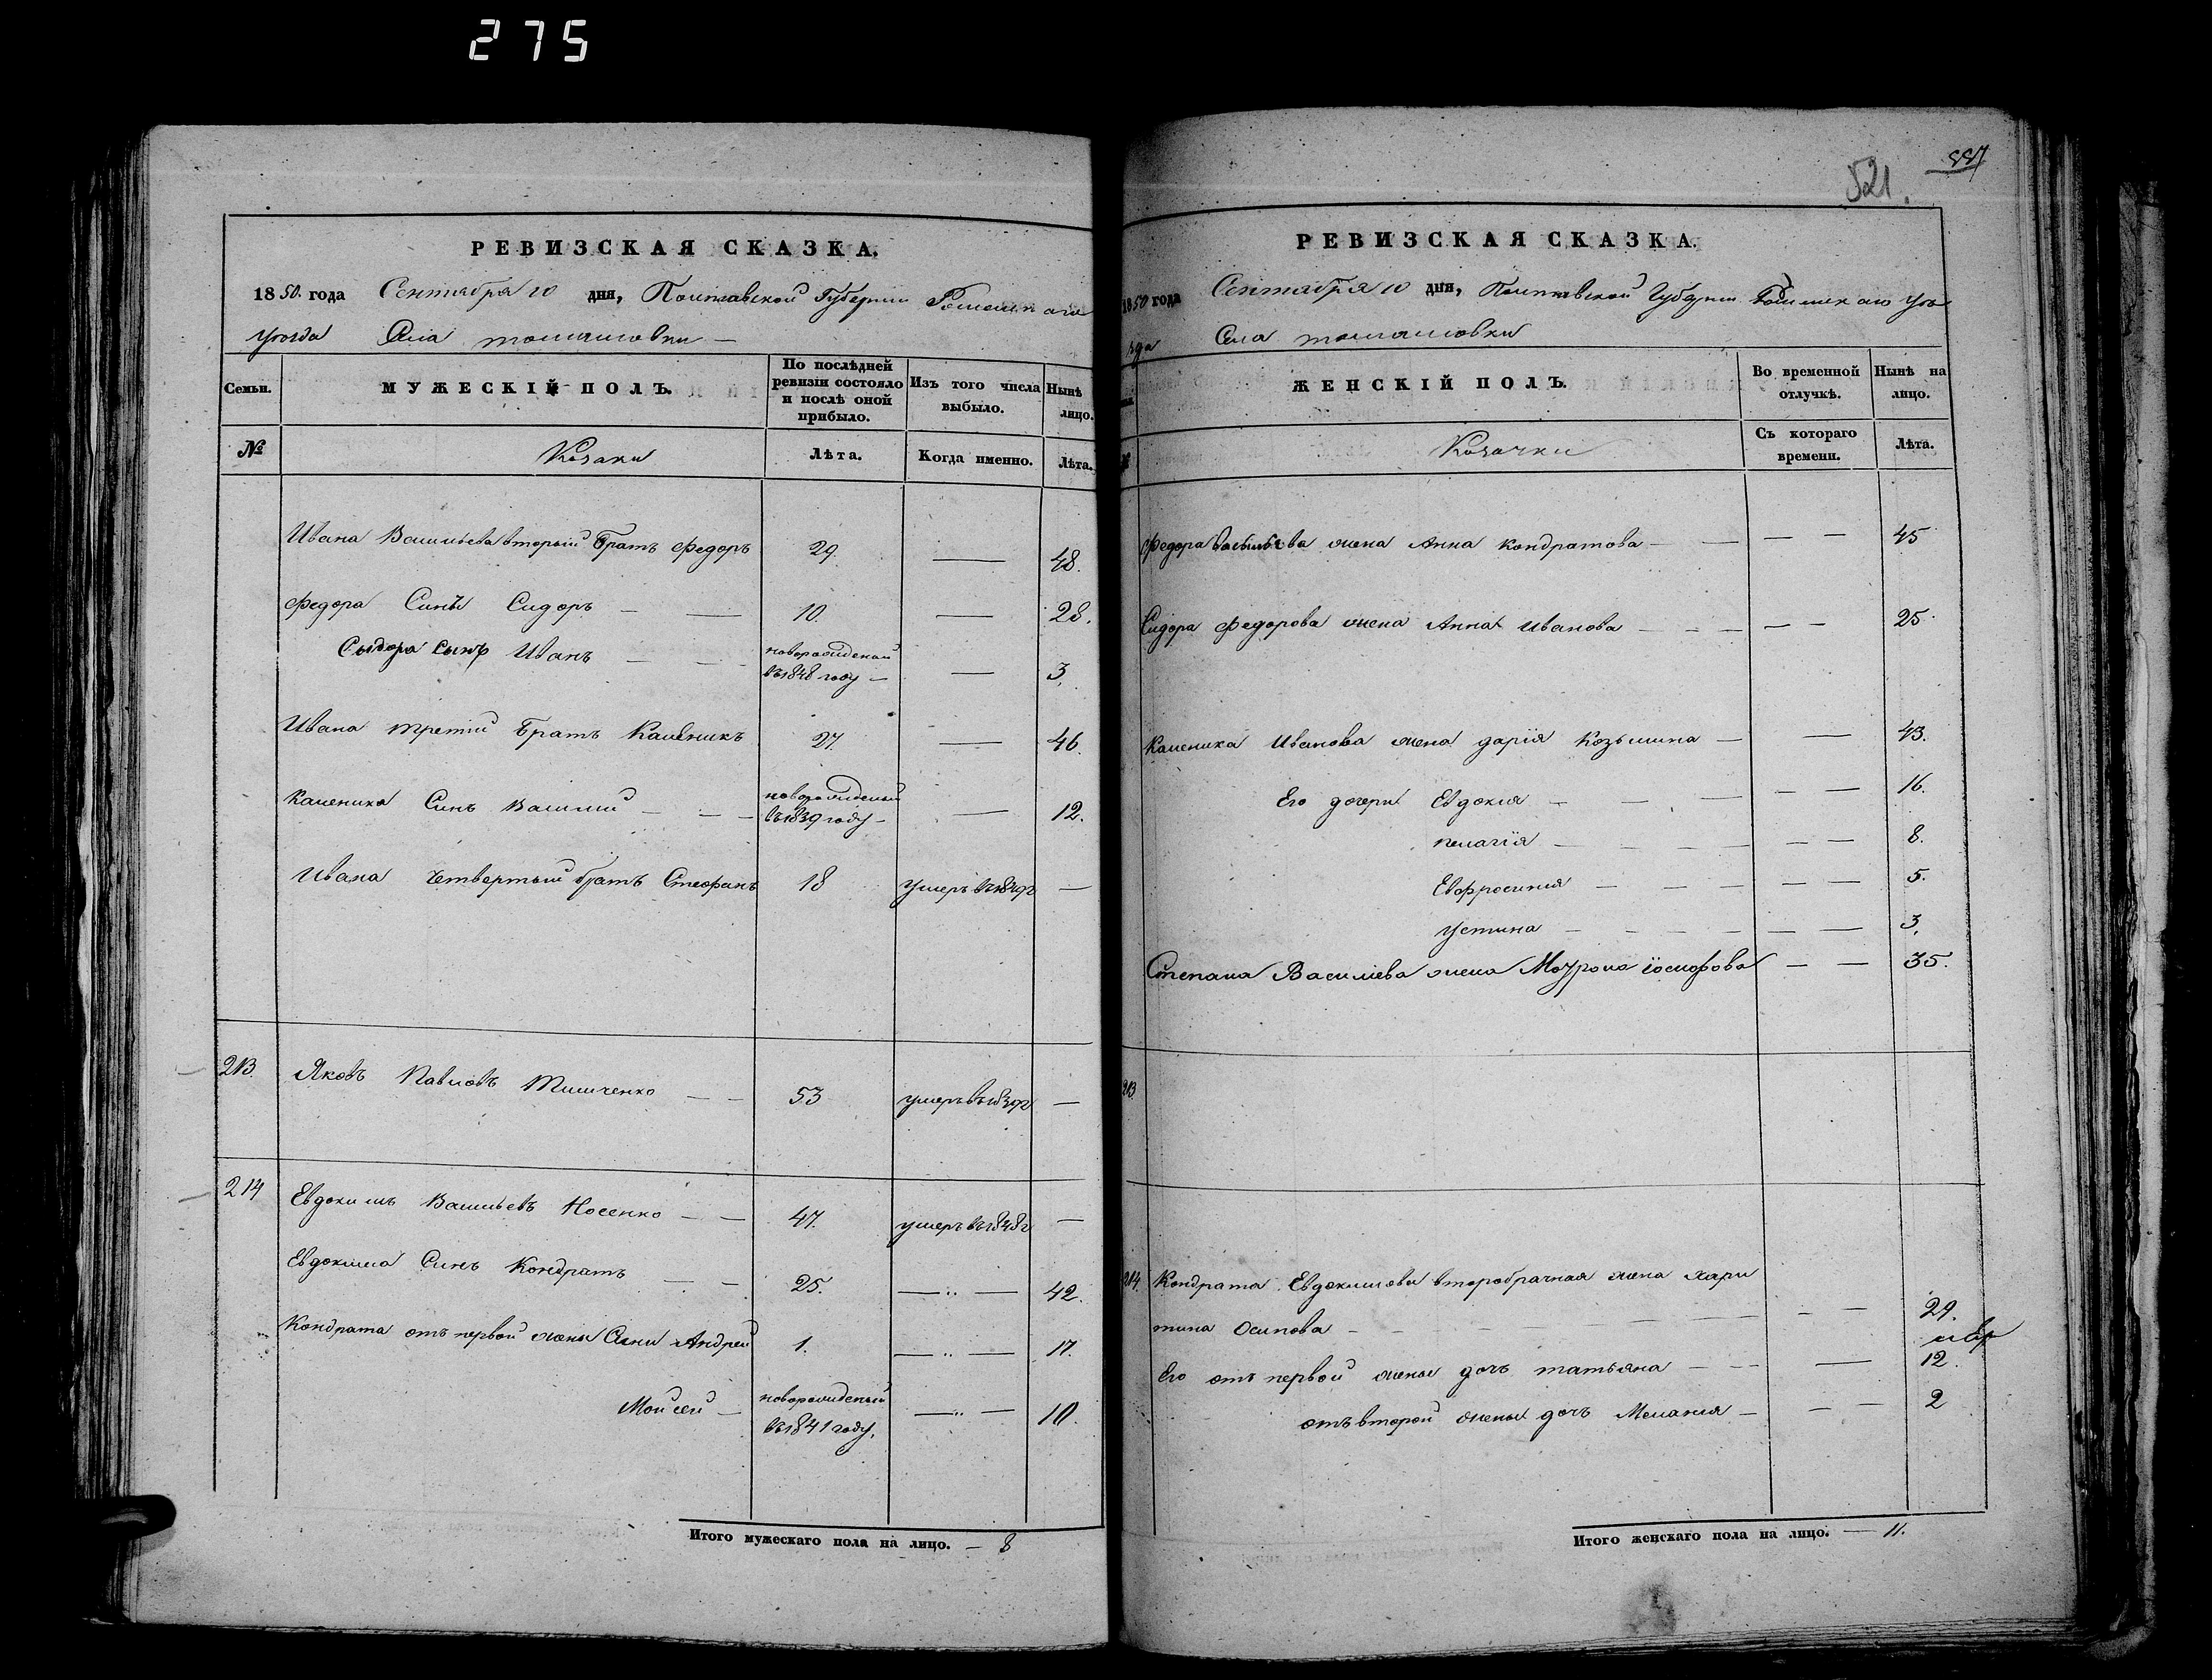 275
РЕВИЗСКАЯ СКАЗКА.
1850. года Сентября 10 дня, Полтавской Губернии Роменскаго
уѣзда Села томашовки —
Семьи. МУЖЕСКІЙ ПОЛЪ. По послѣдней ревизіи состояло и послѣ оной прибыло. Изъ того числа выбыло. Нынѣ лицо.
№ Козаки Лѣта. Когда именно. Лѣта.
Ивана Васильева вторый братъ Федоръ 29. — 48.
Федора Синъ Сидоръ — — 10. — 28.
Сыдора сынъ Иванъ — — новорожденой въ 1848 году — — 3.
Ивана третій братъ Каленикъ 27. — 46.
Каленика Синъ Василий — — — новорожденый въ 1839 году — — 12.
Ивана Четвертый братъ Стефанъ 18 умеръ въ —
213. Яковъ Павловъ Тимченко — — 53 умеръ въ —
214 Евдокимъ Васильевъ Носенко — — 47. умеръ въ 1848г —
Евдокима Синъ Кондратъ — — 25. — „ — 42.
Кондрата отъ первой жены Сини Андрей 1. — „ — 17.
Мойсей — новорожденый въ 1841 году. — „ — 10.
Итого мужескаго пола на лицо. — 8
521.
887
РЕВИЗСКАЯ СКАЗКА.
1850 года Сентября 10 дня, Полтавской Губернии Роменскаго уѣ
зда Села томашовки
ЖЕНСКІЙ ПОЛЪ. Во временной отлучкѣ. Нынѣ на лицо.
№ Козачки Съ котораго времени. Лѣта.
Федора Васильева жена Анна Кондратова — — — — 45
Сидора Федорова жена Анна Иванова — — — — — 25.
Каленика Иванова жена дарія Козьмина — — 43.
Его дочери Евдокия — — — — — 16.
пелагія — — — — — — 8.
Евфросиния — — — — — — 5.
устина — — — — — — 3.
Степана Василиева жена Мотрона іосифова — — 35.
213
214. Кондрата Евдокимова второбрачная жена хари
тина Осипова — — — — — — — 29.
Его отъ первой жены дочь татьяна — — — 12.
отъ второй жены дочь Мелания — — — 2
Итого женскаго пола на лицо. — 11.